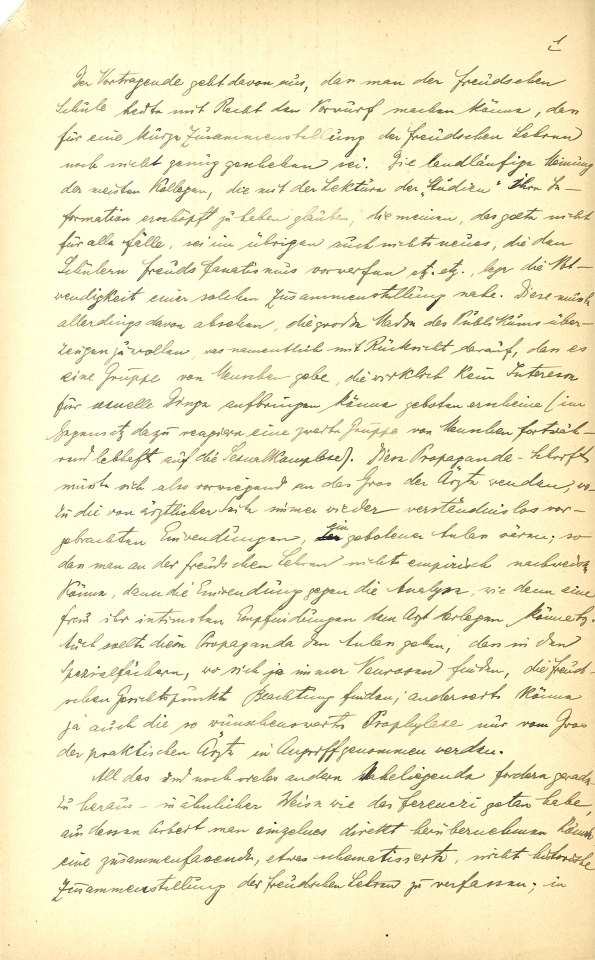 1
Der Vortragende geht davon aus, dass man der Freudschen
Schule heute mit Recht den Vorwurf machen könne, dass
für eine kurze Zusammenstellung der Freudschen Lehren
noch nicht genug geschehen sei. Die landläufige Meinung
der meisten Kollegen, die mit der Lektüre der „Studien" ihre In-
formation erschöpft zu haben glauben, die meinen, das gelte nicht
für alle Fälle, sei im übrigen auch nichts neues, die den
Schülern Freuds Fanatismus vorwerfen etz. etz., lege die Not-
wendigkeit einer solchen Zusammenstellung nahe. Diese müsste
allerdings davon absehen, die grosse Masse des Publikums über-
zeugen zu wollen, was namentlich mit Rücksicht darauf, dass es
eine Gruppe von Menschen gebe, die wirklich kein Interesse
für sexuelle Dinge aufbringen könne geboten erscheine (im
Gegensatz dazu reagiere eine zweite Gruppe von Menschen fortwäh-
rend lebhaft auf die Sexualkomplexe). Diese Propaganda-Schrift
müsste sich also vorwiegend an das Gros der Ärzte wenden, wo-
zu die von ärztlicher Seite immer wieder verständnislos vor-
gebrachten Einwendungen, ein gebotener Anlass wären; so
dass man an der Freudschen Lehren nichts empirisch nachweisen
könne, dann die Einwendung gegen die Analyse, wie denn eine
Frau ihr intimsten Empfindungen dem Arzt vorlegen könne etz.
Auch sollte diese Propaganda den Anlass geben, dass in den
Spezialfächern, wo sich ja immer Neurosen finden, die Freud-
schen Gesichtspunkte Beachtung finden; anderseits könne
ja auch die so wünschenswerte Prophylaxe nur vom Gros
der praktischen Ärzte in Angriff genommen werden.
All das und noch vieles andere Naheliegende fordere gerade
zu heraus – in ähnlicher Weise wie das Ferenczi getan habe,
aus dessen Arbeit man einzelnes direkt herübernehmen könne
eine zusammenfassende, etwas schematisierte, nicht historische
Zusammenstellung der Freudschen Lehren zu verfassen; in